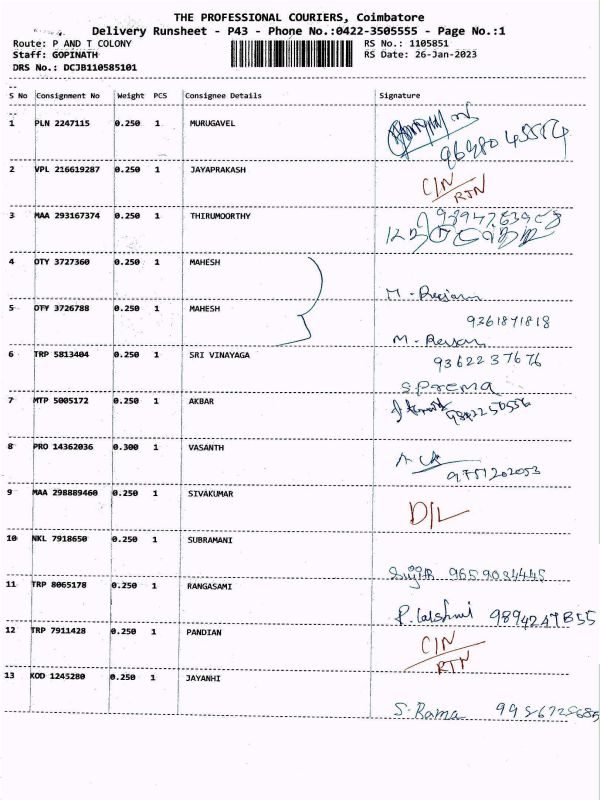 THE PROFESSIONAL COURIERS, Coimbatore
Delivery Runsheet - P43 - Phone No.:0422-3505555 - Page No.:1
Route: P AND T COLONY RS No.: 1105851
Staff: GOPINATH RS Date: 26-Jan-2023
DRS No.: DCJB110585101
S No Consignment No Weight PCS Consignee Details Signature
1 PLN 2247115 0.250 1 MURUGAVEL
2 VPL 216619287 0.250 1 JAYAPRAKASH C/N
RTN
3 MAA 293167374 0.250 1 THIRUMOORTHY
4 OTY 3727360 0.250 1 MAHESH
5 OTY 3726788 0.250 1 MAHESH 9361871818
6 TRP 5813404 0.250 1 SRI VINAYAGA 9362237676
S.Prema
7 MTP 5005172 0.250 1 AKBAR
8 PRO 14362036 0.300 1 VASANTH
9751202053
9 MAA 298889460 0.250 1 SIVAKUMAR D/L
10 NKL 7918650 0.250 1 SUBRAMANI
9659034445
11 TRP 8065178 0.250 1 RANGASAMI
P. Lakshmi
12 TRP 7911428 0.250 1 PANDIAN C/N
RTN
13 KOD 1245280 0.250 1 JAYANHI
S. Rama